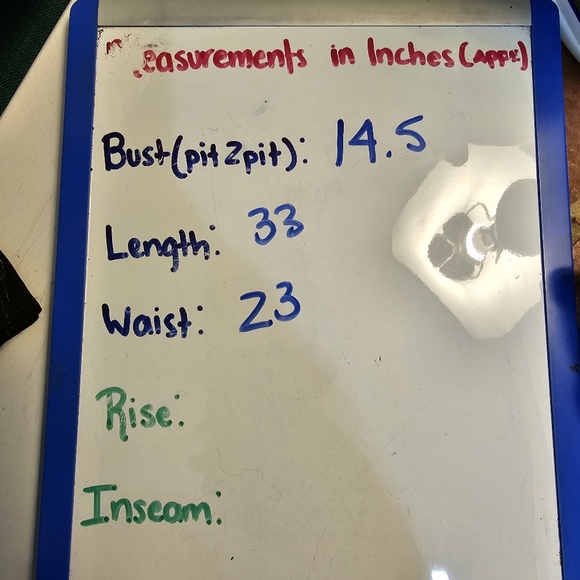 Measurements in Inches (APPX)
Bust (pit2pit): 14.5
Length: 33
Waist: 23
Rise:
Inseam: